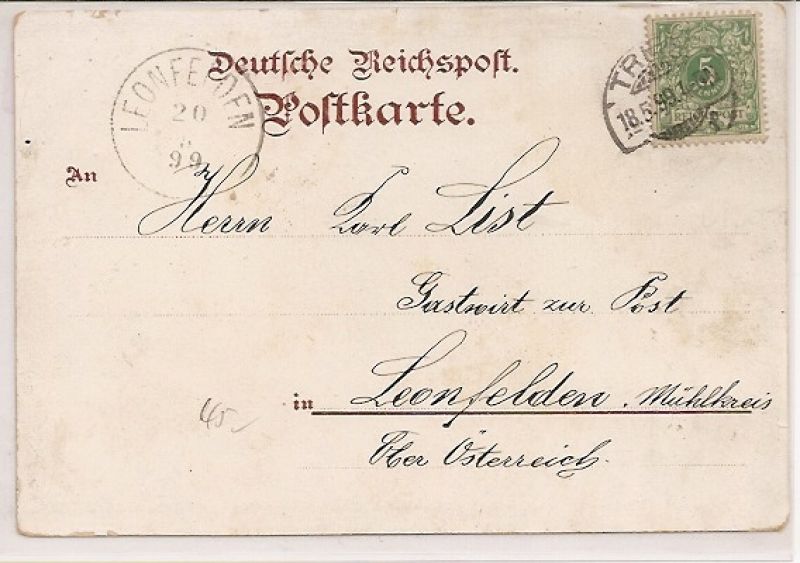 Deutsche Reichspost.
Postkarte.
LEONFELDEN
20
5
99
18.5.99.
5
REICHSPOST
An
Herrn Karl List
Gastwirt zur Post
in Leonfelden. Mühlkreis
Ober Österreich.
45-